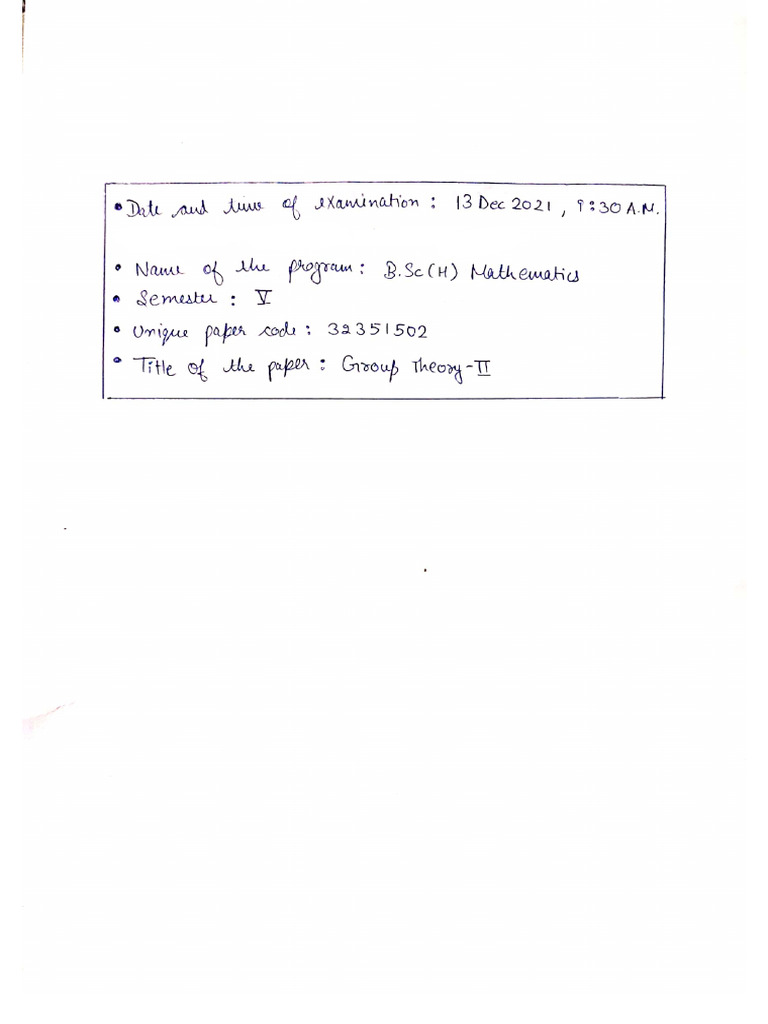 • Date and time of examination : 13 Dec 2021, 9:30 A.M.
• Name of the program : B.Sc (H) Mathematics
• Semester : V
• Unique paper code : 32351502
• Title of the paper : Group Theory-II